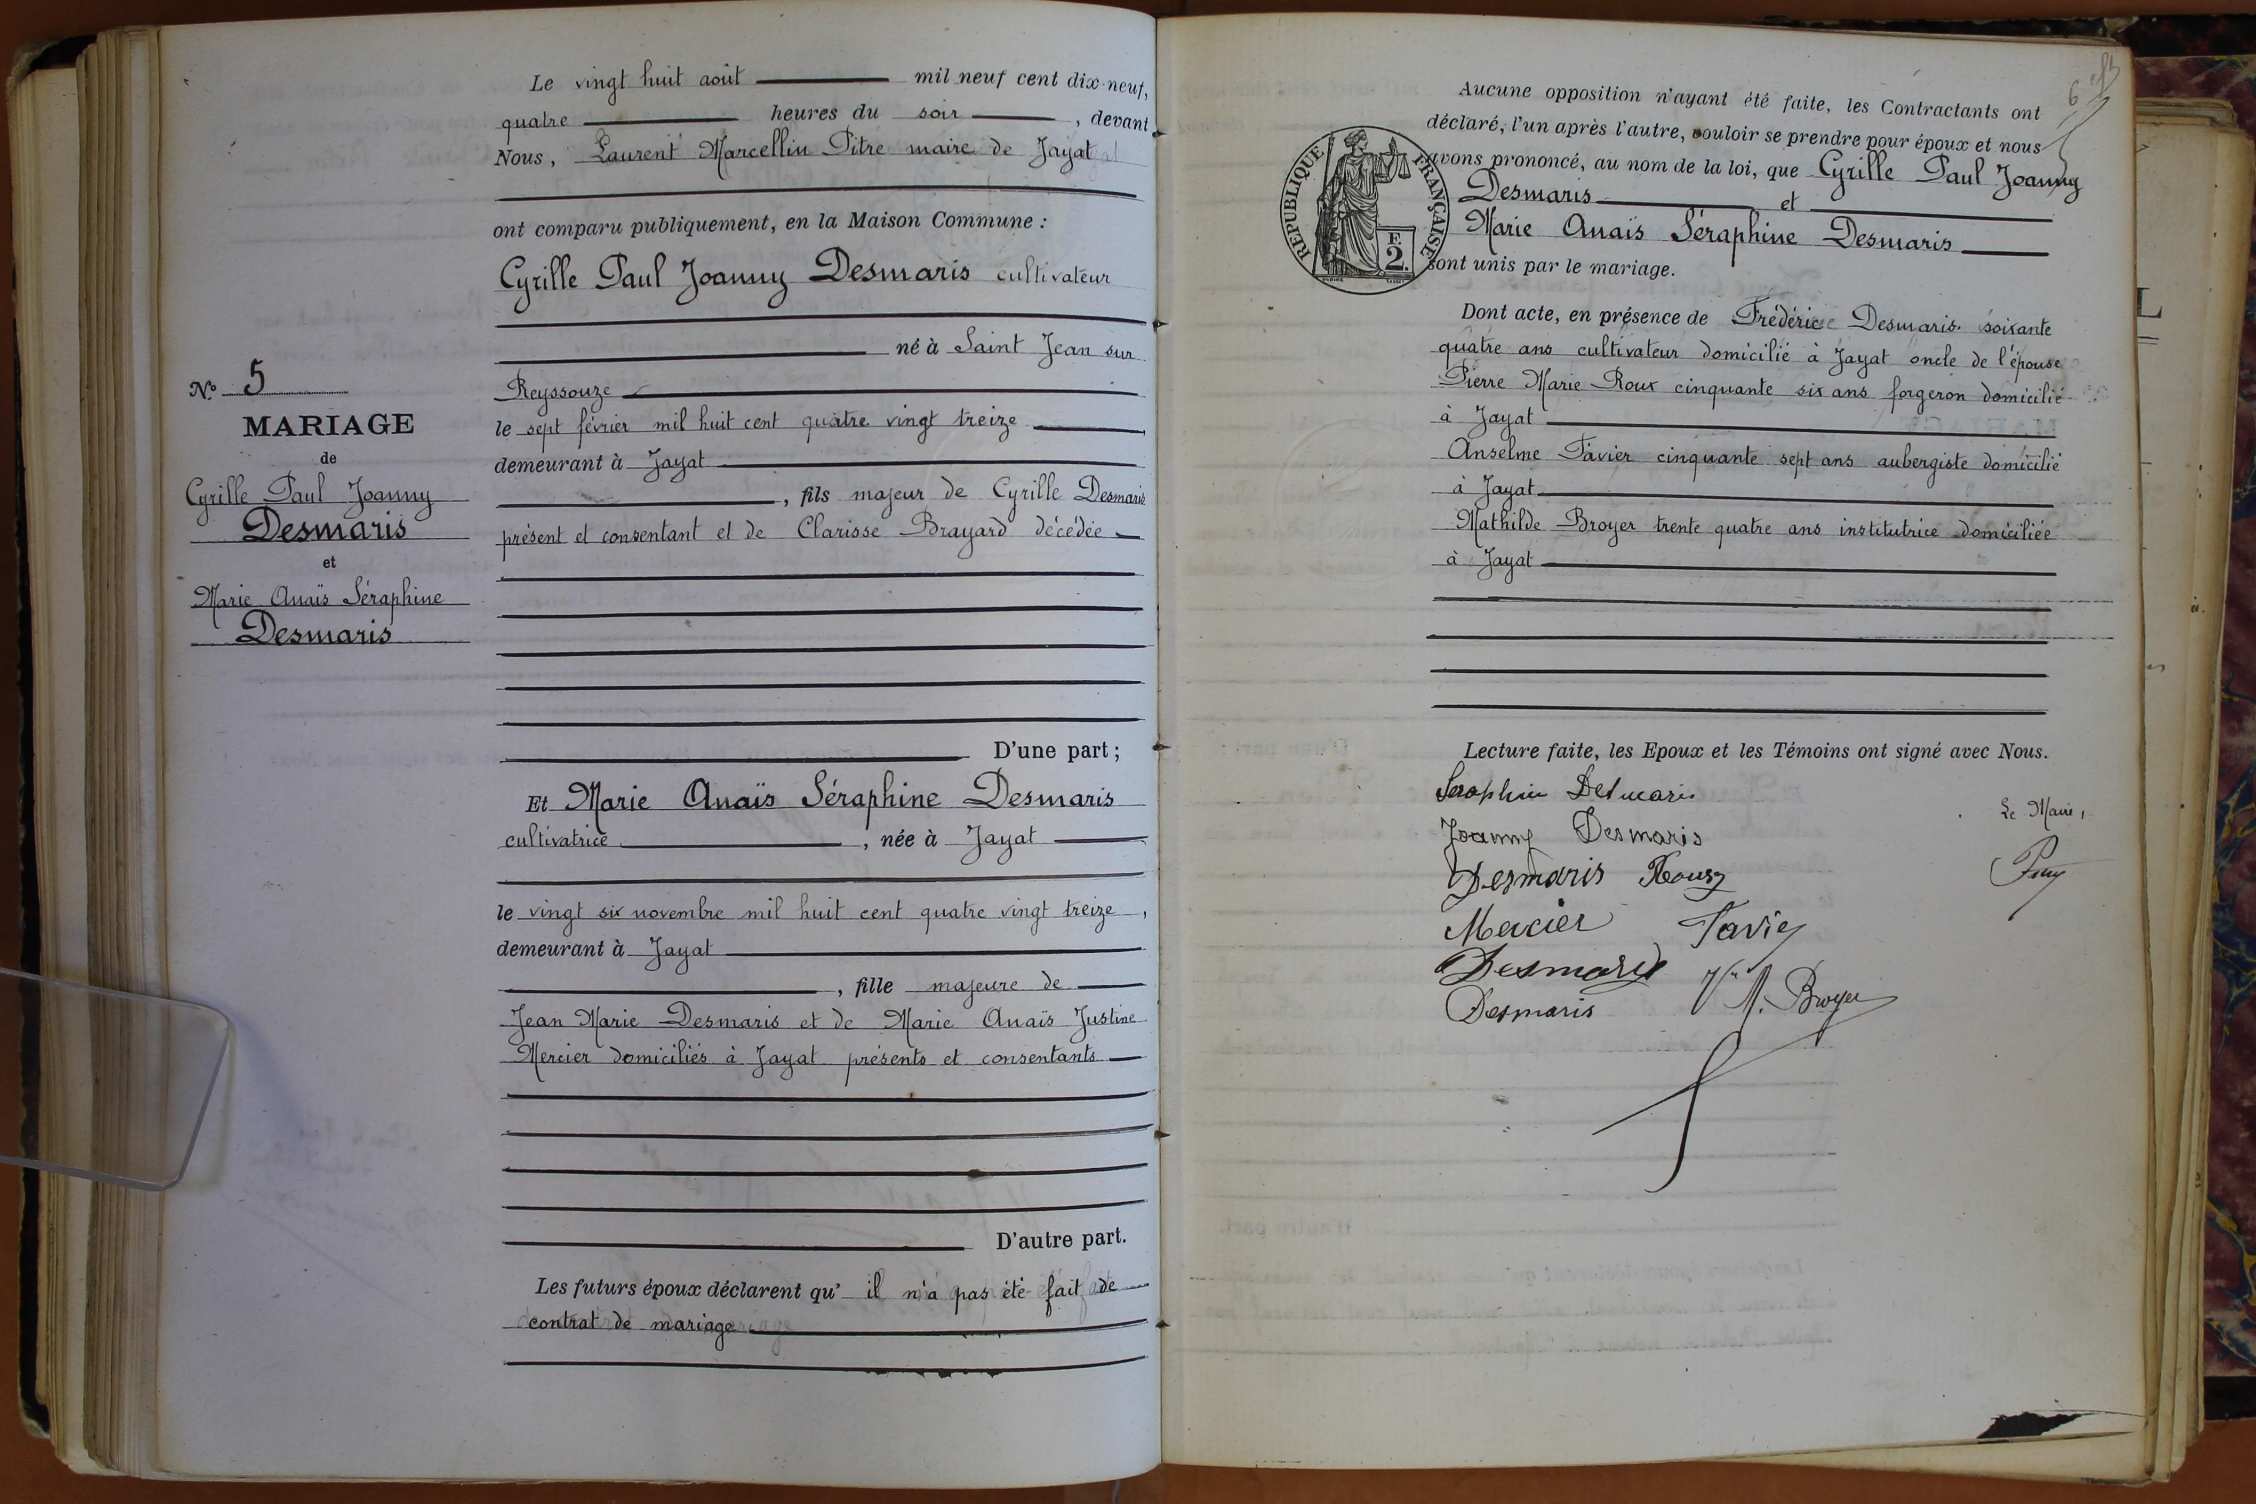 Le vingt huit août mil neuf cent dix-neuf,
quatre heures du soir, devant
Nous, Laurent Marcellin Pitre maire de Jayat
ont comparu publiquement, en la Maison Commune :
Cyrille Paul Joanny Desmaris cultivateur
né à Saint Jean sur
Reyssouze
le sept février mil huit cent quatre vingt treize
demeurant à Jayat
, fils majeur de Cyrille Desmaris
présent et consentant et de Clarisse Brayard décédée
D'une part ;
Et Marie Anaïs Séraphine Desmaris
cultivatrice, née à Jayat
le vingt six novembre mil huit cent quatre vingt treize,
demeurant à Jayat
, fille majeure de
Jean Marie Desmaris et de Marie Anaïs Justine
Mercier domiciliés à Jayat présents et consentants
D'autre part.
Les futurs époux déclarent qu'il n'a pas été fait de
contrat de mariage
N.º 5
MARIAGE
de
Cyrille Paul Joanny
Desmaris
et
Marie Anaïs Séraphine
Desmaris
6
Aucune opposition n'ayant été faite, les Contractants ont
déclaré, l'un après l'autre, vouloir se prendre pour époux et nous
avons prononcé, au nom de la loi, que Cyrille Paul Joanny
Desmaris et
Marie Anaïs Séraphine Desmaris
sont unis par le mariage.
REPUBLIQUE FRANÇAISE
F.
2.
Dont acte, en présence de Frédéric Desmaris soixante
quatre ans cultivateur domicilié à Jayat oncle de l'épouse
Pierre Marie Roux cinquante six ans forgeron domicilié
à Jayat
Anselme Favier cinquante sept ans aubergiste domicilié
à Jayat
Mathilde Broyer trente quatre ans institutrice domiciliée
à Jayat
Lecture faite, les Epoux et les Témoins ont signé avec Nous.
Séraphine Desmaris
Le Maire,
Joanny Desmaris
Desmaris Roux
Mercier Favier
Desmaris
Desmaris M. Broyer